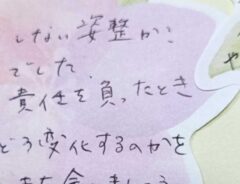 しない姿整が
でした.
責任を負ったとき
どう変化するのかを
や